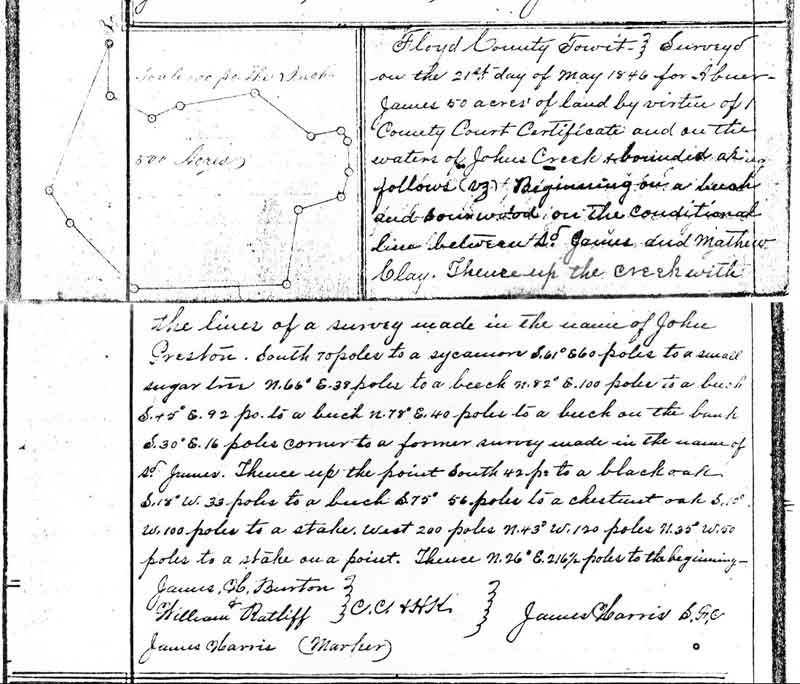 Scale 100 po. the Inch
500 Acres
Floyd County Towit } Survey'd
on the 21st day of May 1846 for Abner
James 50 acres of land by virtue of 1
County Court Certificate and on the
waters of Johns Creek & bounded as
follows (vz) Beginning on a beech
and on the conditional
line between sd James and Mathew
Clay. Thence up the creek with
the lines of a survey made in the name of John
Preston. South 70 poles to a sycamore S.61° E60 poles to a small
sugar tree N.66° E.38 poles to a beech N.82° E.100 poles to a beech
S.45° E.92 po. to a beech N.78° E.40 poles to a beech on the bank
S.30° E.16 poles corner to a former survey made in the name of
sd James. Thence up the point South 42 po to a black oak
S.18° W.33 poles to a beech S.75° 56 poles to a chestnut oak S.10°
W.100 poles to a stake. West 200 poles N.43° W.120 poles N.35° W.50
poles to a stake on a point. Thence N.26° E.216½ poles to the beginning—
James H. Burton }
William Ratliff } C.C. & H.K. } James Harris S.F.C
James Harris (Marker)